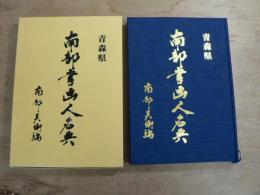 青森県
南部書画人名典
南部美術編
青森県
南部書画人名典
南部美術編